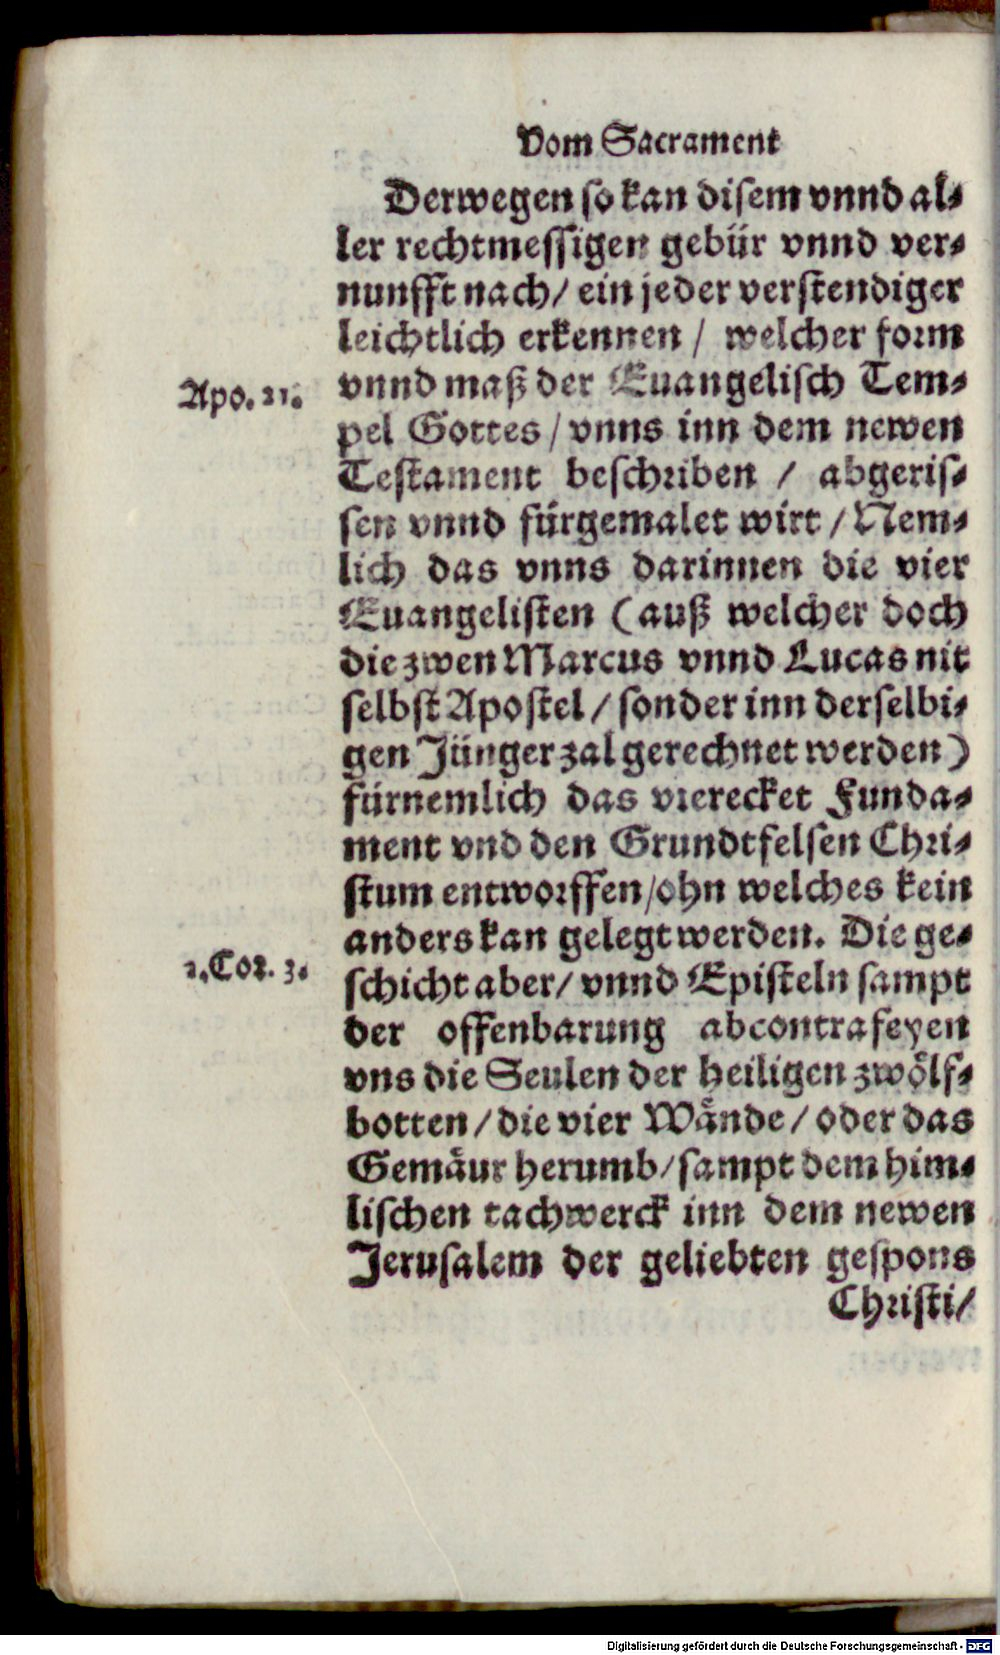 Vom Sacrament
Derwegen so kan disem vnnd al-
ler rechtmessigen gebür vnnd ver-
nunfft nach/ ein jeder verstendiger
leichtlich erkennen / welcher form
vnnd maß der Euangelisch Tem-
Apo. 21.
pel Gottes / vnns inn dem newen
Testament beschriben / abgeris-
sen vnnd fürgemalet wirt / Nem-
lich das vnns darinnen die vier
Euangelisten (auß welcher doch
die zwen Marcus vnnd Lucas nit
selbst Apostel / sonder inn derselbi-
gen Jünger zal gerechnet werden)
fürnemlich das vierecket Funda-
ment vnd den Grundtfelsen Chri-
stum entworffen/ohn welches kein
anders kan gelegt werden. Die ge-
1.Cor. 3.
schicht aber/ vnnd Episteln sampt
der offenbarung abcontrafeyen
vns die Seulen der heiligen zwölf-
botten / die vier Wände / oder das
Gemäur herumb/sampt dem him-
lischen tachwerck inn dem newen
Jerusalem der geliebten gespons
Christi/
Digitalisierung gefördert durch die Deutsche Forschungsgemeinschaft - DFG